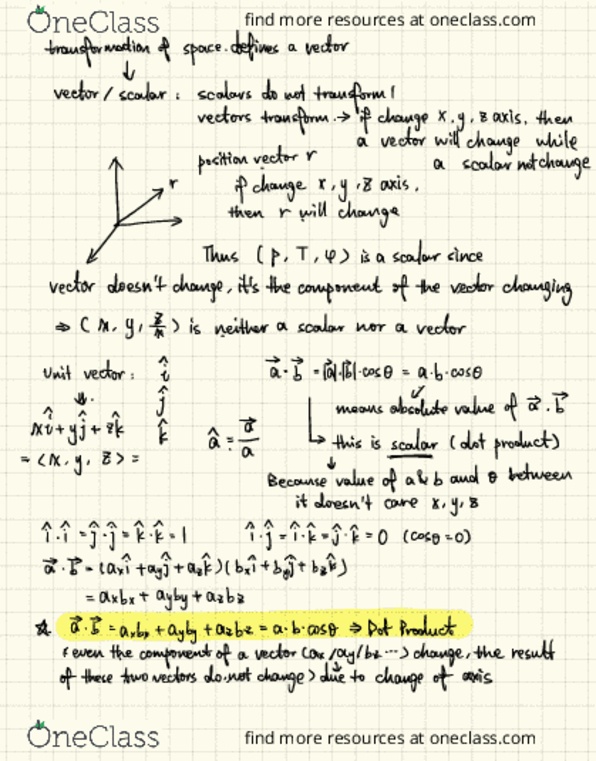 OneClass find more resources at oneclass.com
transformation of space. defines a vector
↓
vector / scalar : scalars do not transform!
vectors transform. → if change x, y, z axis, then
a vector will change while
a scalar not change
position vector r
r
if change x, y, z axis,
then r will change
Thus (p, T, φ) is a scalar since
vector doesn't change, it's the component of the vector changing
⇒ (x, y, z/x) is neither a scalar nor a vector
unit vector : î
ĵ
k̂
xî + yĵ + zk̂
= <x, y, z> =
â = a⃗/a
a⃗ · b⃗ = |a⃗|·|b⃗|·cosθ = a·b·cosθ
means absolute value of a⃗ · b⃗
↳ this is scalar (dot product)
↓
Because value of a & b and θ between
it doesn't care x, y, z
î·î = ĵ·ĵ = k̂·k̂ = 1 î·ĵ = î·k̂ = ĵ·k̂ = 0 (cosθ = 0)
a⃗ · b⃗ = (axî + ayĵ + azk̂)(bxî + byĵ + bzk̂)
= axbx + ayby + azbz
☆ a⃗ · b⃗ = axbx + ayby + azbz = a·b·cosθ ⇒ Dot Product
(even the component of a vector (ax/ay/bx ...) change, the result
of these two vectors do not change) due to change of axis
OneClass find more resources at oneclass.com